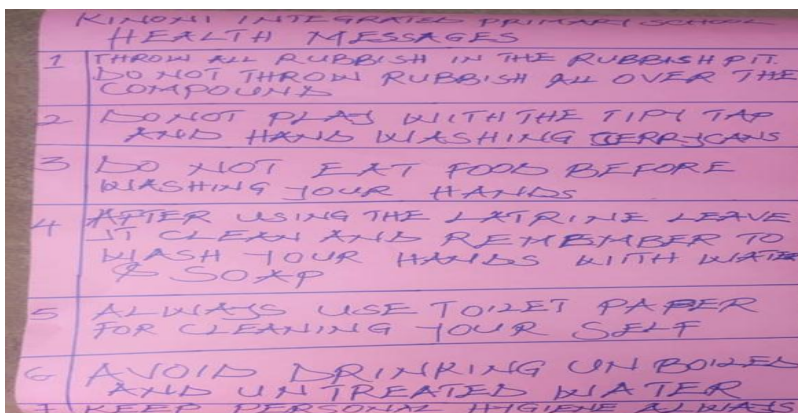 KINONI INTEGRATED PRIMARY SCHOOL
HEALTH MESSAGES
1 THROW ALL RUBBISH IN THE RUBBISH PIT.
DO NOT THROW RUBBISH ALL OVER THE
COMPOUND
2 DO NOT PLAY WITH THE TIPY TAP
AND HAND WASHING JERRYCANS
3 DO NOT EAT FOOD BEFORE
WASHING YOUR HANDS
4 AFTER USING THE LATRINE LEAVE
IT CLEAN AND REMEMBER TO
WASH YOUR HANDS WITH WATER
& SOAP
5 ALWAYS USE TOILET PAPER
FOR CLEANING YOUR SELF
6 AVOID DRINKING UN BOILED
AND UN TREATED WATER
7 KEEP PERSONAL HYGIENE ALWAYS